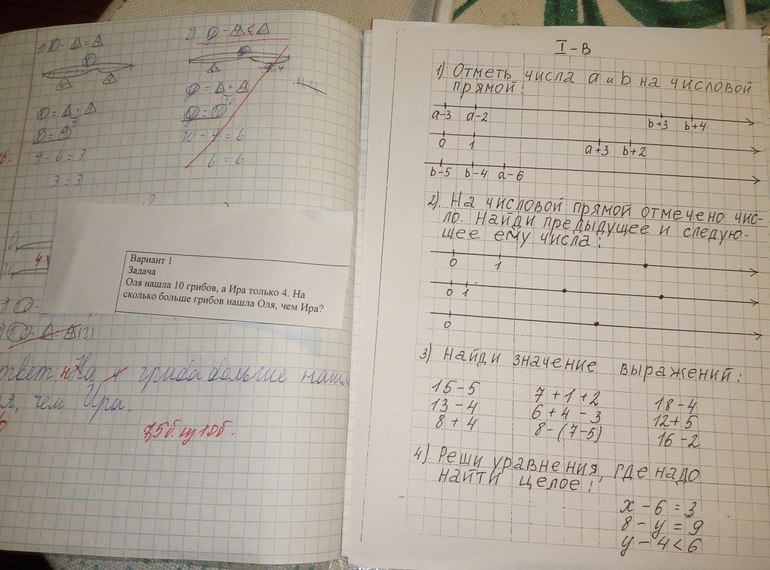 1) O - Δ = Δ
2) O - Δ < Δ
9 - 6 = 3
10 - 4 = 6
3 = 3
6 = 6
Вариант 1
Задача
Оля нашла 10 грибов, а Ира только 4. На
сколько больше грибов нашла Оля, чем Ира?
гриба больше
чем Ира.
7,5 б. из 10 б.
I - В
1) Отметь числа а и b на числовой
прямой:
а-3 а-2 b+3 b+4
0 1 а+3 b+2
b-5 b-4 а-6
2). На числовой прямой отмечено чис-
ло. Найди предыдущее и следую-
щее ему числа:
0 1
0 1
0
3) Найди значение выражений:
15-5 7+1+2 18-4
13-4 6+4-3 12+5
8+4 8-(7-5) 16-2
4) Реши уравнения, где надо
найти целое:
x - 6 = 3
8 - y = 9
y - 4 < 6